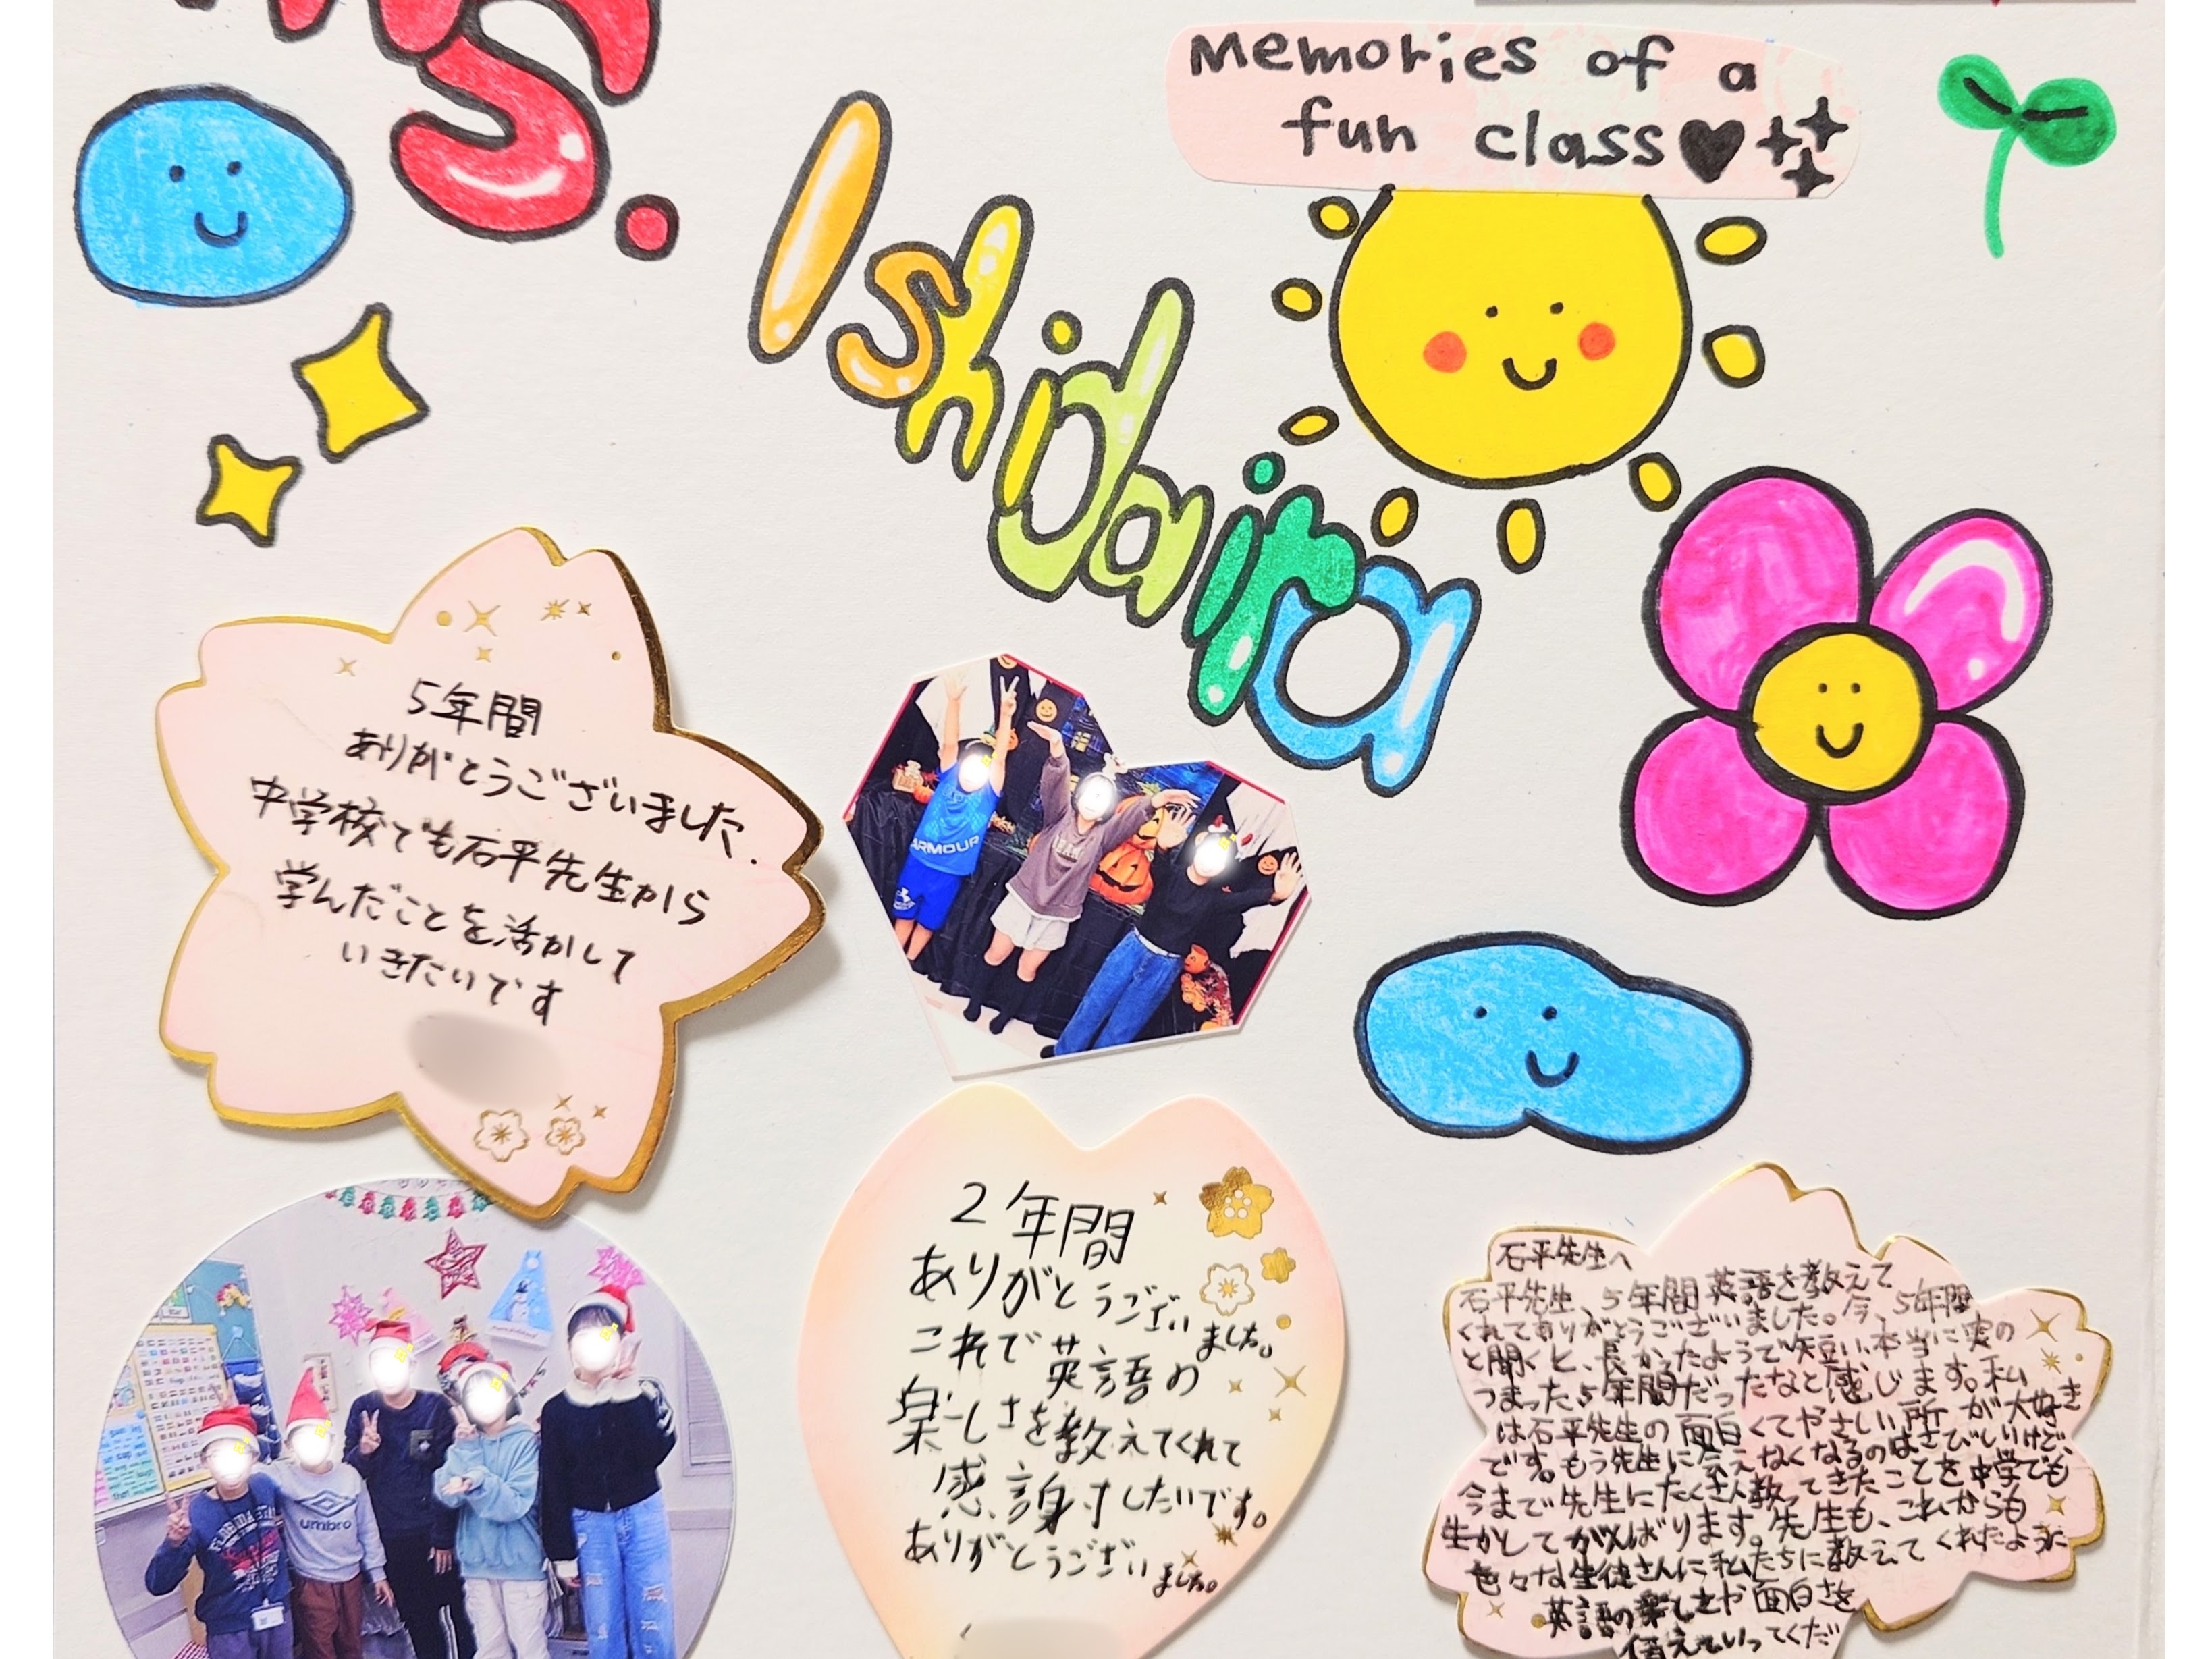 ms.
Ishidaira
Memories of a
fun class♥
5年間
ありがとうございました.
中学校でも石平先生から
学んだことを活かして
いきたいです
ARMOUR
umbro
2年間
ありがとうござい
ました。
これで英語の
楽しさを教えてくれて
感謝したいです。
ありがとうござい
ました。
石平先生へ
石平先生、5年間英語を教えて
くれてありがとうございました。今、5年間
と聞くと、長かったようで短い、本当に実の
つまった5年間だったなと感じます。私
は石平先生の面白くてやさしい所が大好き
です。もう先生に会えなくなるのはさびしいけど、
今まで先生にたくさん教ってきたことを中学でも
生かしてがんばります。先生も、これからも
色々な生徒さんに私たちに教えてくれたように
英語の楽しさや面白さを
伝えていってくだ